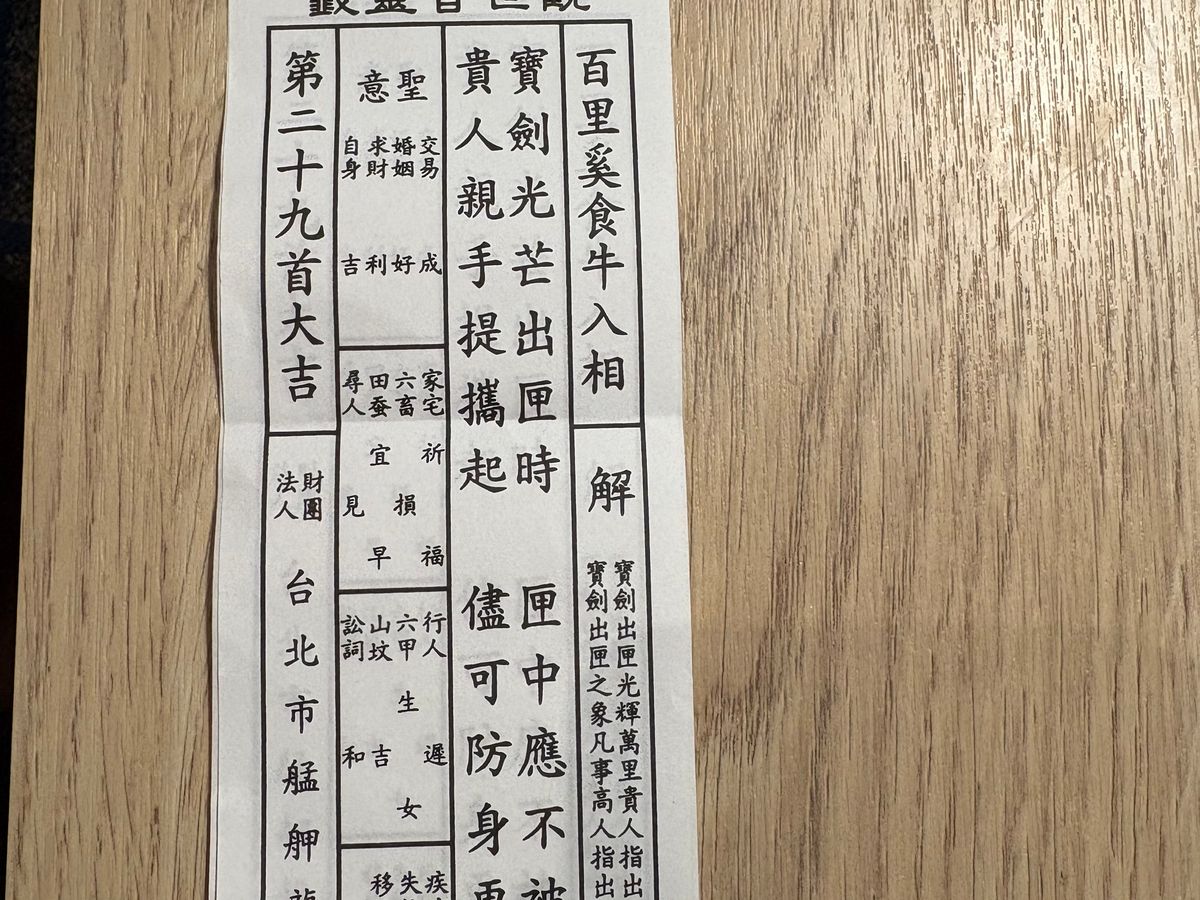 觀世音靈籤
百里奚食牛入相
解
寶劍出匣光輝萬里貴人指出
寶劍出匣之象凡事高人指出
寶劍光芒出匣時 匣中應不被
貴人親手提攜起 儘可防身
聖意
交易 成
婚姻 好
求財 利
自身 吉
家宅 祈福
六畜 損
田蚕 宜早
尋人 見
行人 遲
六甲 生女
山坟 吉
訟詞 和
疾
失
移
第二十九首大吉
財團法人 台北市艋舺龍